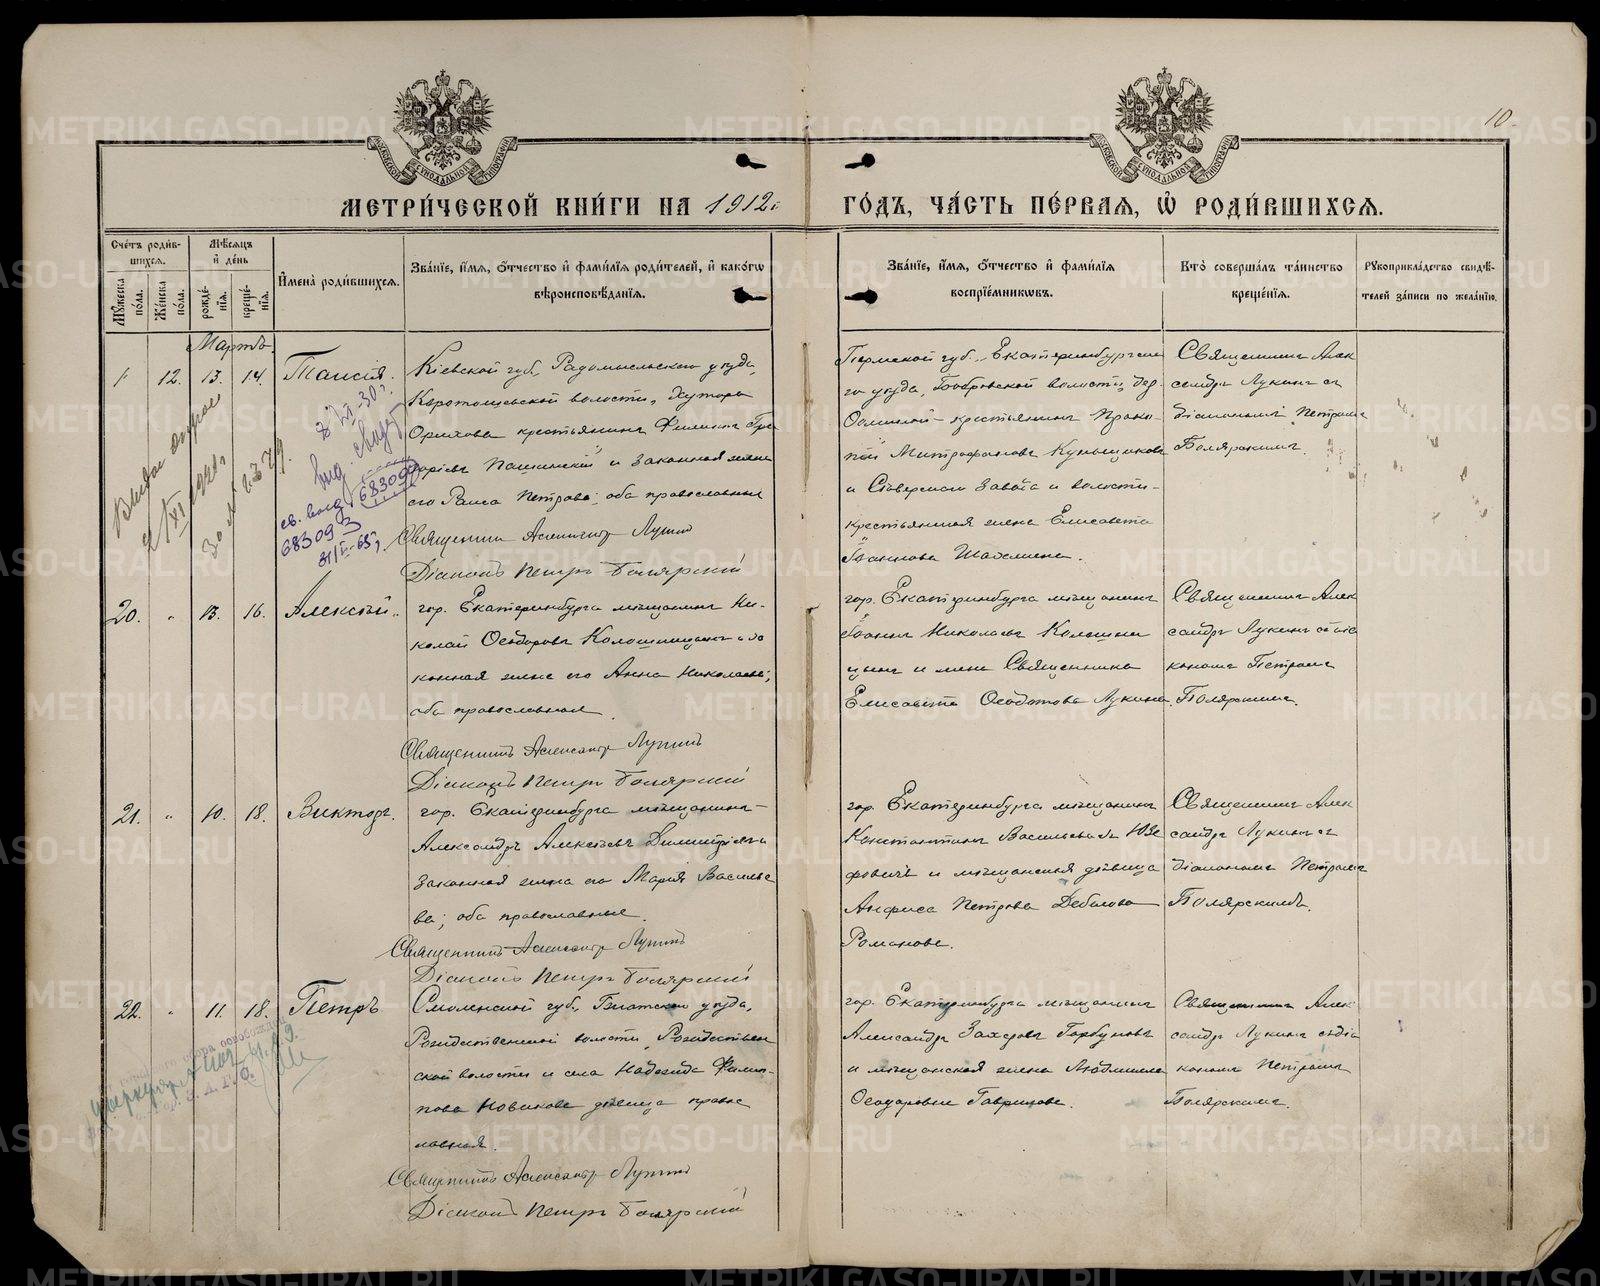 10.
МОСКОВСКОЙ СѴНОДАЛЬНОЙ ТИПОГРАФІИ
МОСКОВСКОЙ СѴНОДАЛЬНОЙ ТИПОГРАФІИ
МЕТРИ́ЧЕСКОЙ КНИ́ГИ НА 1912 г
ГО́ДЪ, ЧА́СТЬ ПЕ́РВАЯ, Ѡ РОДИ́ВШИХСЯ.
Сче́тъ роди́в-
шихся.
Мѣ́сяцъ
и де́нь
Му́жеска
по́ла.
Же́нска
по́ла.
рожде́-
нія.
креще́-
нія.
Имена̀ роди́вшихся.
Зва́ніе, и́мя, о́тчество и фами́лія роди́телей, и како́гѡ
вѣроисповѣ́данія.
Зва́ніе, и́мя, о́тчество и фами́лія
воспріе́мникѡвъ.
Кто̀ соверша́лъ та́инство
креще́нія.
Рукоприкла́дство свидѣ́-
телей за́писи по жела́нію.
Мартъ.
12. 13. 14. Таисія.
Кіевской губ., Радомысльскаго уѣзда,
волости, Хутора
крестьянинъ Филиппъ Гри
и законная жена
его Раиса Петрова; оба православные
Священникъ Александръ Лукинъ
Діаконъ Петръ Боярскій
Пермской губ., Екатеринбургска
го уѣзда, Бобровской волости, дер.
крестьянинъ Проко-
пій Митрофановъ
и Сысертскаго Завода и волости
крестьянская жена Елисавета
Іоаннова
Священникъ Алек
сандръ Лукинъ съ
діакономъ Петромъ
Боярскимъ.
68309
68309
31/I-65г.
20. " 13. 16. Алексѣй.
гор. Екатеринбурга мѣщанинъ Ни-
колай Ѳеодоровъ Колошницынъ и за
конная жена его Анна Николаева;
оба православные.
Священникъ Александръ Лукинъ
Діаконъ Петръ Боярскій
гор. Екатеринбурга мѣщанинъ
Іоаннъ Николаевъ Колошни
цынъ и жена Священника
Елисавета Ѳеодотова Лукина.
Священникъ Алек
сандръ Лукинъ съ діа
кономъ Петромъ
Боярскимъ.
21. " 10. 18. Викторъ.
гор. Екатеринбурга мѣщанинъ
Александръ Алексѣевъ
законная жена его Марія Василье
ва; оба православные.
Священникъ Александръ Лукинъ
Діаконъ Петръ Боярскій
гор. Екатеринбурга мѣщанинъ
Константинъ Васильевъ Юзе
фовичъ и мѣщанская дѣвица
Анфиса Петрова
Романова.
Священникъ Алек
сандръ Лукинъ съ
діакономъ Петромъ
Боярскимъ.
22. " 11. 18. Петръ
Смоленской губ., Гжатскаго уѣзда,
Рождественской волости, Рождествен
ской волости и села Надежда Филип-
пова Новикова дѣвица правос
лавная.
Священникъ Александръ Лукинъ
Діаконъ Петръ Боярскій
гор. Екатеринбурга мѣщанинъ
Александръ Захаровъ Горбуновъ
и мѣщанская жена Людмила
Ѳеодоровна Гаврилова.
Священникъ Алек
сандръ Лукинъ съ діа
кономъ Петромъ
Боярскимъ.
METRIKI.GASO-URAL.RU